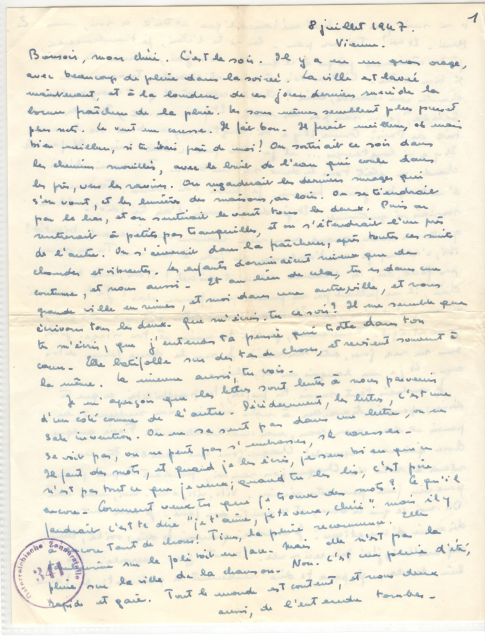 1
8 juillet 1947.
Vienne.
Bonsoir, mon chéri. C'est le soir. Il y a eu un gros orage,
avec beaucoup de pluie dans la soirée. La ville est lavée
maintenant, et à la lourdeur de ces jours derniers succède la
bonne fraîcheur de la pluie. Les sons mêmes semblent plus purs et
plus nets. Le vent me caresse. Il fait bon. Il ferait meilleur, oh mais
bien meilleur, si tu étais près de moi! On sortirait ce soir dans
les chemins mouillés, avec le bruit de l'eau qui coule dans
les prés, vers les ravins. On regarderait les derniers nuages qui
s'en vont, et les lumières des maisons, au loin. On se tiendrait
par le bras, et on sentirait le vent tous les deux. Puis on
rentrerait à petits pas tranquilles, et on s'étendrait l'un près
de l'autre. On s'aimerait dans la fraîcheur, après toutes ces nuits
chaudes et vibrantes. Les enfants dormiraient mieux que de
coutume, et nous aussi. Et au lieu de cela, tu es dans une
grande ville en ruines, et moi dans une autre ville, et nous
écrivons tous les deux. Que m'écris-tu ce soir? Il me semble que
tu m'écris, que j'entends ta pensée qui trotte dans ton
cœur. Elle batifolle sur des tas de choses, et revient souvent à
la même. La mienne aussi, tu vois.
Je m'aperçois que les lettres sont lentes à nous parvenir,
d'un côté comme de l'autre. Décidemment, les lettres, c'est une
sale invention. On ne se sent pas dans une lettre, on ne
se voit pas, on ne peut pas s'embrasser, se caresser.
Il faut des mots, et quand je les écris, je sens bien que ce
n'est pas tout ce que je veux; quand tu les lis, c'est pire
encore. Comment veux-tu que je trouve des mots? Ce qu'il
faudrait c'est te dire "je t'aime, je te veux, chéri" mais il y
a encore tant de choses! Tiens, la pluie recommence. Elle
sur le joli toit en face. Mais elle n'est pas la
pluie sur la ville de la chanson. Non. C'est une pluie d'été,
rapide et gaie. Tout le monde est content, et nous deux
aussi, de l'entendre tomber.
Österreichische Zensurstelle
341